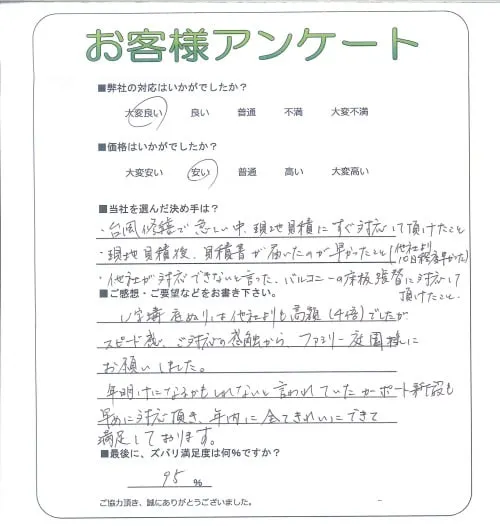 お客様アンケート
■弊社の対応はいかがでしたか？
大変良い 良い 普通 不満 大変不満
■価格はいかがでしたか？
大変安い 安い 普通 高い 大変高い
■当社を選んだ決め手は？
・台風修繕で忙しい中、現地見積にすぐ対応して頂けたこと
・現地見積後、見積書が届いたのが早かったこと(他社より10日程早かった)
・他社が対応できないと言った、バルコニーの床板張替に対応して
頂けたこと。
■ご感想・ご要望などをお書き下さい。
底ぬりは他社よりも高額(4倍)でしたが
スピード感、ご対応の感触から、ファミリー庭園様に
お願いしました。
年明けになるかもしれないと言われていたカーポート新設も
早めに対応頂き、年内に全てきれいにできて
満足しております。
■最後に、ズバリ満足度は何%ですか？
95 %
ご協力頂き、誠にありがとうございました。